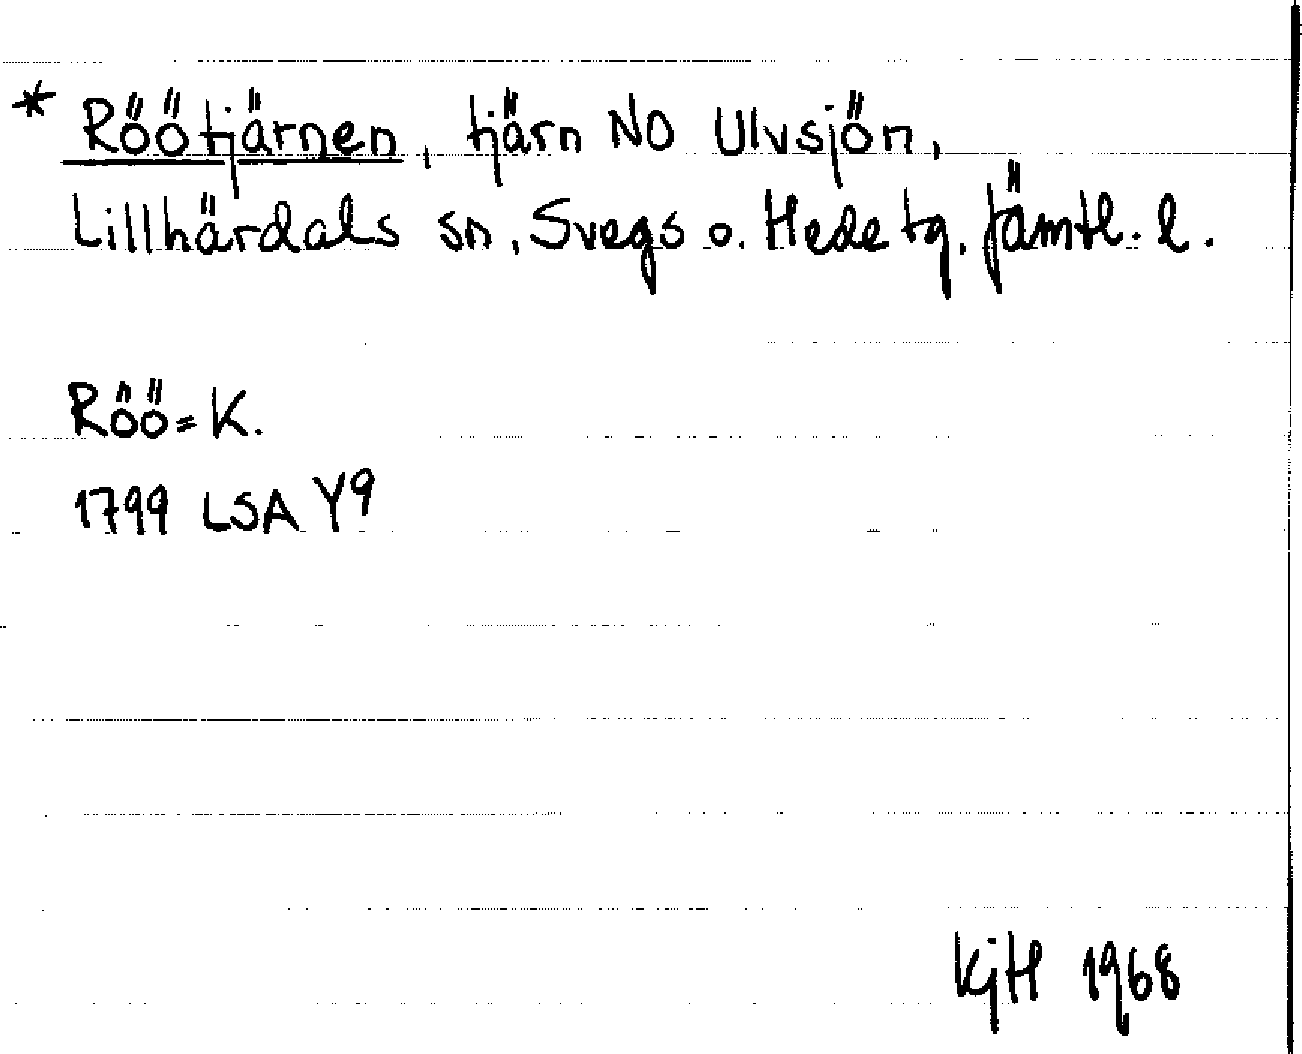 * Röötjärnen, tjärn NO Ulvsjön,
Lillhärdals sn, Svegs o. Hede tg. Jämtl. l.
Röö= K.
1799 LSA Y9
KjH 1968